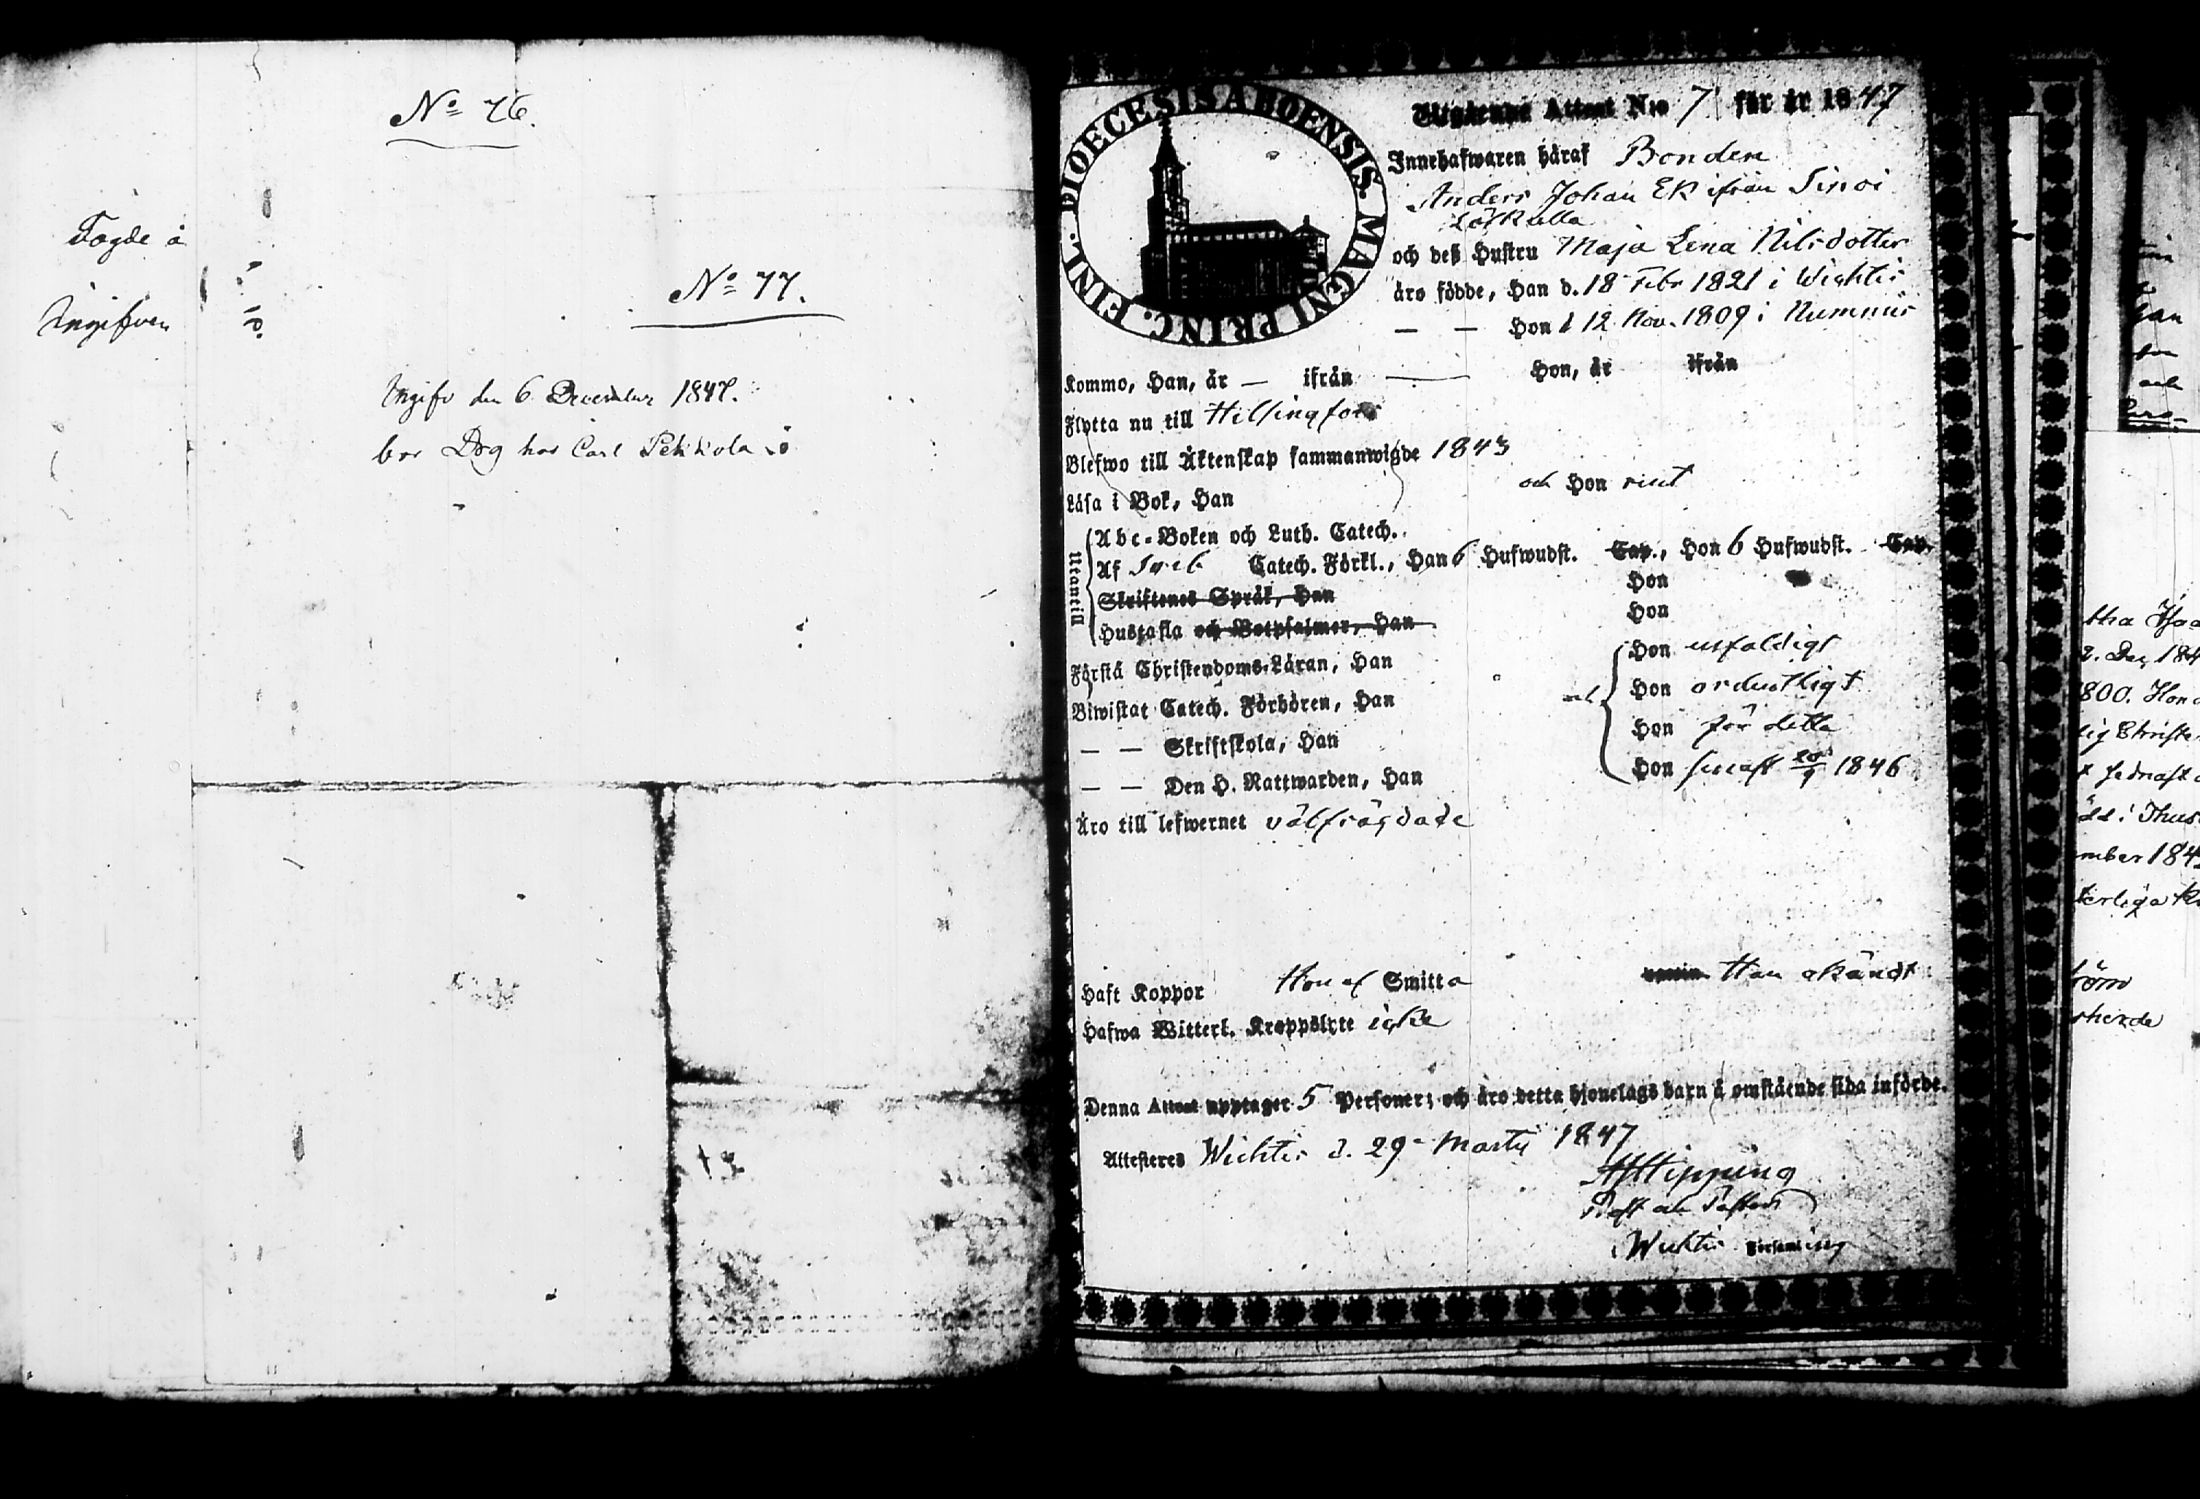 No 76.
No 77.
Ingifv den 6 December 1847.
bor Dog hos Carl
DIOECESIS ABOENSIS. MAGNI PRINC. FINL.
Utgående Attest N:o 7 för år 1847
Innehafwaren häraf Bonden
Anders Johan Ek ifrån
och deß Hustru Maja Lena Nilsdotter
äro födde, Han d. 18 Febr 1821 i Wichtis
— — Hon d 12 Nov. 1809 i Nummis
Kommo, Han, år — ifrån — Hon, år ifrån
Flytta nu till Helsingfors
Blefwo till Äktenskap sammanwigde 1843
Läsa i Bok, Han och Hon rent
Utantill
Abc-Boken och Luth. Catech.
Af Sveb Catech. Förkl., Han 6 Hufwudst. Cap., Hon 6 Hufwudst. Cap.
Skriftenes Språk, Han Hon
Hustafla och Botpsalmer, Han Hon
Förstå Christendoms-Läran, Han Hon enfaldigt
Biwistat Catech. Förhören, Han och Hon ordentligt
— — Skriftskola, Han Hon för detta
— — Den H. Nattwarden, Han Hon senast 20/9 1846
Äro till lefwernet välfrägdade
Haft Koppor Hon af Smitta Han okändt
Hafwa Witterl. Kroppslyte icke
Denna Attest upptager 5 Personer; och äro detta hjonelags barn å omstående sida införde.
Attesteres Wichtis d. 29 Martii 1847
AJHipping
Prost och Pastor
i Wichtis Församling
1800. Hon